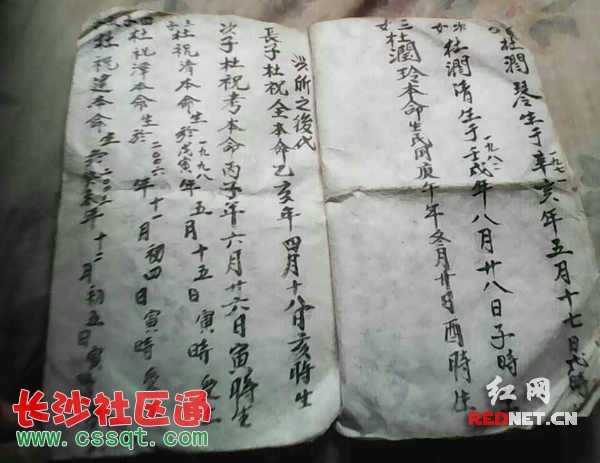 杜潤琴生于一九七一辛亥年五月十七日戌時
次女杜潤清生于一九八二壬戌年八月廿八日子時
三女杜潤玲本命生民國庚午年冬月廿日酉時生
洪所之後代
長子杜祝全本命乙亥年四月十八日亥時生
次子杜祝考本命丙子年六月廿六日寅時生
三子杜祝清本命生於一九九八戊寅年五月十五日寅時
四子杜祝澤本命生於二〇〇六年十一月初四日寅時
杜祝建本命生於二〇〇三癸未年十二月初五日寅時
红网
REDNET.CN
长沙社区通
www.cssqt.com